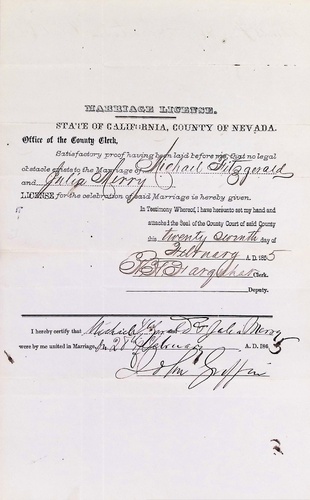 MARRIAGE LICENSE.
STATE OF CALIFORNIA, COUNTY OF NEVADA.
Office of the County Clerk,
Satisfactory proof having been laid before me, that no legal
obstacle exists to the Marriage of Michael Fitzgerald
and Julia Merry
LICENSE for the celebration of said Marriage is hereby given.
In Testimony Whereof, I have hereunto set my hand and
attached the Seal of the County Court of said County
this twenty seventh day of
February A. D. 1865
Farquhar Clerk.
Deputy.
I hereby certify that & Julia Merry
were by me united in Marriage, on 28th February A. D. 1865
John Griffin